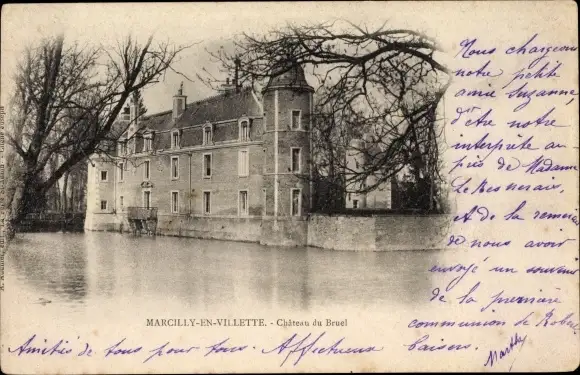 MARCILLY-EN-VILLETTE. - Château du Bruel
Nous chargeons
notre petite
amie Suzanne,
d'être notre
interprète au
près de Madame
& de la remercier
de nous avoir
envoyé un souvenir
de la première
communion de Robert
Amitiés de tous pour tous. Affectueux baisers.
Marthe